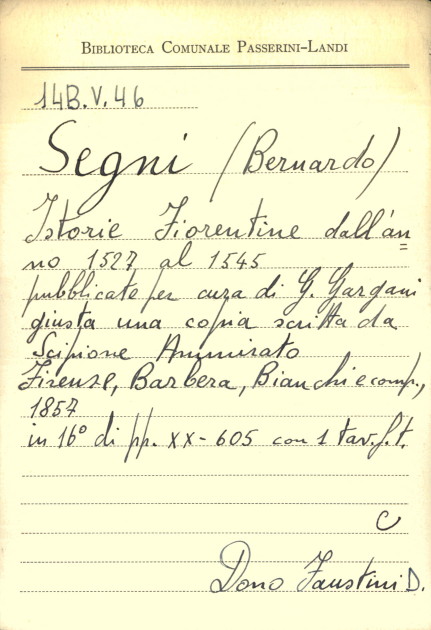 BIBLIOTECA COMUNALE PASSERINI-LANDI
14B.V.46
Segni (Bernardo)
Istorie Fiorentine dall'an=
no 1527 al 1545
pubblicate per cura di G. Gargani
giusta una copia scritta da
Scipione Ammirato
Firenze, Barbera, Bianchi e comp.,
1857
in 16° di pp. XX-605 con 1 tav.f.t.
C
Dono Faustini D.